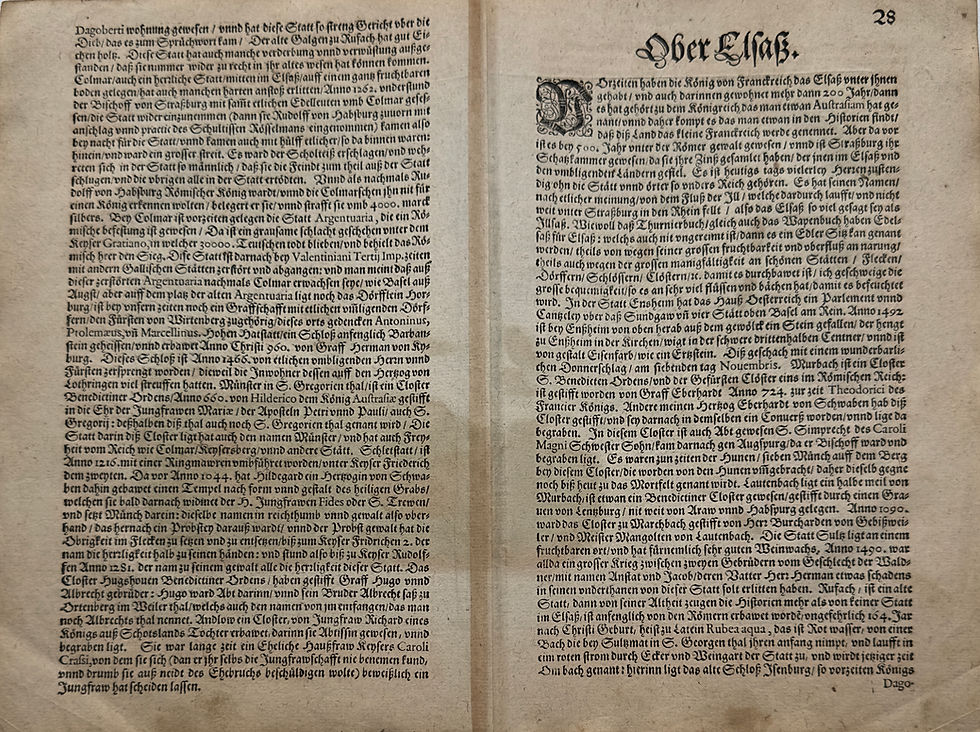 Dagoberti wohnung gewesen / vnnd hat diese Statt so streng Gericht vber die
Dieb / das es zum Sprüchwort kam / Der alte Galgen zu Rufach hat gut Ei-
chen holtz. Diese Statt hat auch manche verderbung vnnd verwüstung außge-
standen / daß sie nimmer wider zu recht in jhr altes wesen hat können kommen.
Colmar / auch ein herliche Statt / mitten im Elsaß / auff einem gantz fruchtbaren
boden gelegen / hat auch manchen harten anstoß erlitten / Anno 1262. vnderstund
der Bischoff von Straßburg mit samt etlichen Edelleuten vmb Colmar geses-
sen / die Statt wider einzunemmen (dann sie Rudolff von Habsburg zuuorn mit
anschlag vnnd practic des Schultissen Rösselmans eingenommen) kamen also
bey nacht für die Statt / vnnd kamen auch mit hülff etlicher / so da binnen waren:
hinein / vnnd ward ein grosser streit. Es ward der Scholteiß erschlagen / vnd weh-
reten sich in der Statt so männlich / daß sie die Feindt zum theil auß der Statt
schlugen / vnd die vbrigen alle in der Statt ertödten. Vnnd als nachmals Ru-
dolff von Habsburg Römischer König wardt / vnnd die Colmarschen jhn nit für
einen König erkennen wolten / belegert er sie / vnnd strafft sie vmb 4000. marck
silbers. Bey Colmar ist vorzeiten gelegen die Statt Argentuaria, die ein Rö-
mische befestung ist gewesen / Da ist ein grausame schlacht geschehen vnter dem
Keyser Gratiano, in welcher 30000. Teutschen todt blieben / vnd behielt das Rö-
misch heer den Sieg. Dise Statt ist darnach bey Valentiniani Tertij Imp. zeiten
mit andern Gallischen Stätten zerstört vnd abgangen: vnd man meint daß auß
dieser zerstörten Argentuaria nachmals Colmar erwachsen seye / wie Basel auß
Augst / aber auff dem platz der alten Argentuaria ligt noch das Dörfflein Hor-
burg / ist bey vnsern zeiten noch ein Graffschafft mit etlichen vmligenden Dörf-
fern / den Fürsten von Wirtenberg zugehörig / dieses orts gedencken Antoninus,
Ptolemæus, vñ Marcellinus. Hohen Hatstatt / ein Schloß anfenglich Barban-
stein geheissen / vnnd erbawet Anno Christi 360. von Graff Herman von Ky-
burg. Dieses Schloß ist Anno 1466. von etlichen vmbligenden Hern vnnd
Fürsten zersprengt worden / dieweil die Inwohner dessen auff den Hertzog von
Lothringen viel streuffen hatten. Münster in S. Gregorien thal / ist ein Closter
Benedictiner Ordens / Anno 660. von Hilderico dem König Australiæ gestifft
in die Ehr der Jungfrawen Mariæ / der Aposteln Petri vnnd Pauli / auch S.
Gregorij: deßhalben diß thal auch noch S. Gregorien thal genant wird / Die
Statt darin diß Closter ligt hat auch den namen Münster / vnd hat auch Frey-
heit vom Reich wie Colmar / Keysersberg / vnnd andere Stätt. Schletstatt / ist
Anno 1216. mit einer Ringmawren vmbführet worden / vnter Keyser Friederich
dem zweyten. Da vor Anno 1044. hat Hildegard ein Hertzogin von Schwa-
ben dahin gebawet einen Tempel nach form vnnd gestalt des heiligen Grabs /
welchen sie bald darnach widmet der H. Jungfrawen Fides oder S. Trewen /
vnnd setzt Münch darein: dieselben namen in reichthumb vnnd gewalt also vber-
hand / das hernach ein Probstey darauß wardt / vnnd der Probst gewalt hat die
Obrigkeit im Flecken zu setzen vnd zu entsetzen / biß zum Keyser Fridrichen 2. der
nam die herrligkeit halb zu seinen händen: vnd stund also biß zu Keyser Rudolf-
fen Anno 1281. der nam zu seinem gewalt alle die herrligkeit dieser Statt. Das
Closter Hugshouen Benedictiner Ordens / haben gestifft Graff Hugo vnnd
Albrecht gebrüder: Hugo ward Abt darinn / vnd sein Bruder Albrecht saß zu
Ortenberg im Weiler thal / welchs auch den namen von jm entfangen / das man
noch Albrechts thal nennet. Andlow ein Closter, von Jungfraw Richard eines
Königs auß Schotslands Tochter erbawet, darinn sie Abtissin gewesen, vnnd
begraben ligt. Sie war lange zeit ein Eheliche Haußfraw Keysers Caroli
Crassi, von dem sie sich (dan er jhr selbs die Jungfrawschafft nie benemen kund,
vnnd drumb sie auß neidt des Ehebruchs beschüldigen wolte) beweißlich ein
Jungfraw hat scheiden lassen.
28
Ober Elsaß.
VOrzeiten haben die König von Franckreich das Elsaß vnter jhnen
gehabt / vnd auch darinnen gewohnet mehr dann 200 Jahr / dann
es hat gehört zu dem Königreich das man etwan Australiam hat ge-
nant / vnnd daher kompt es das man etwan in den Historien findt /
daß diß Land das kleine Franckreich werde genennet. Aber da vor
ist es bey 500. Jahr vnter der Römer gewalt gewesen / vnnd ist Straßburg jhr
Schatzkammer gewesen / da sie jhre Zinß gesamlet haben / der jnen im Elsaß vnd
den vmbligenden Ländern gefiel. Es ist heutigs tags vielerley Herren zusten-
dig ohn die Stätt vnnd örter so vnders Reich gehören. Es hat seinen Namen /
nach etlicher meinung / von dem Fluß der Ill / welche dardurch laufft / vnd nicht
weit vnter Straßburg in den Rhein felt / also das Elsaß so viel gesagt sey als
Illsaß. Wiewoll daß Thurnierbuch / gleich auch das Wapenbuch haben Edel-
saß für Elsaß: welchs auch nit vngereimt ist / dann es ein Edler Sitz kan genant
werden / theils von wegen seiner grossen fruchtbarkeit vnd vberfluß an narung /
theils auch wegen der grossen manigfaltigkeit an schönen Stätten / Flecken /
Dörffern / Schlössern / Clöstern / rc. damit es durchbawet ist / ich geschweige die
grosse bequemigkeit / so es an sehr viel flüssen vnd bächen hat / damit es befeuchtet
wird. In der Statt Ensheim hat das Hauß Oesterreich ein Parlement vnnd
Cantzeley vber daß Sundgaw vñ vier Stätt oben Basel am Rein. Anno 1492
ist bey Enßheim von oben herab auß dem gewölck ein Stein gefallen / der hengt
zu Enßheim in der Kirchen / wigt in der schwere drittenhalben Centner / vnnd ist
von gestalt Eisenfarb / wie ein Ertzstein. Diß geschach mit einem wunderbarli-
chen Donnerschlag / am siebenden tag Nouembris. Murbach ist ein Closter
S. Benedicten Ordens / vnd der Gefürsten Clöster eins im Römischen Reich:
ist gestifft worden von Graff Eberhardt Anno 724. zur zeit Theodorici des
Francier Königs. Andere meinen Hertzog Eberhardt von Schwaben hab diß
Closter gestifft / vnd sey darnach in demselben ein Conuerß worden / vnnd lige da
begraben. In diesem Closter ist auch Abt gewesen S. Simprecht des Caroli
Magni Schwester Sohn / kam darnach gen Augspurg / da er Bischoff ward vnd
begraben ligt. Es waren zun zeiten der Hunen / sieben Münch auff dem Berg
bey diesem Closter / die worden von den Hunen vmgebracht / daher dieselb gegne
noch biß heut zu das Mortfelt genant wirdt. Lautenbach ligt ein halbe meil von
Murbach / ist etwan ein Benedictiner Closter gewesen / gestifft durch einen Gra-
uen von Lentzburg / nit weit von Araw vnnd Habspurg gelegen. Anno 1090.
ward das Closter zu Marchbach gestifft von Herr Burcharden von Gebißwei-
ler / vnd Meister Mangolten von Lautenbach. Die Statt Sultz ligt an einem
fruchtbaren ort / vnd hat fürnemlich sehr guten Weinwachs, Anno 1490. war
allda ein grosser Krieg zwischen zweyen Gebrüdern vom Geschlecht der Wald-
ner / mit namen Anstat vnd Jacob / deren Vatter Herr Herman etwas schadens
in seinen vnderthanen von dieser Statt solt erlitten haben. Rufach / ist ein alte
Statt, dann von seiner Altheit zeugen die Historien mehr als von keiner Statt
im Elsaß, ist anfenglich von den Römern erbawet wordē, vngefehrlich 164. Jar
nach Christi Geburt, heist zu Latein Rubea aqua, das ist Rot wasser, von einer
Bach die bey Sultzmat in S. Georgen thal jhren anfang nimpt, vnd laufft in
ein roten strom durch Ecker vnd Weingart der Statt zu, vnd wirdt jetziger zeit
Om bach genant: hierinn ligt das alte Schloß Isenburg / so vorzeiten Königs
Dago-